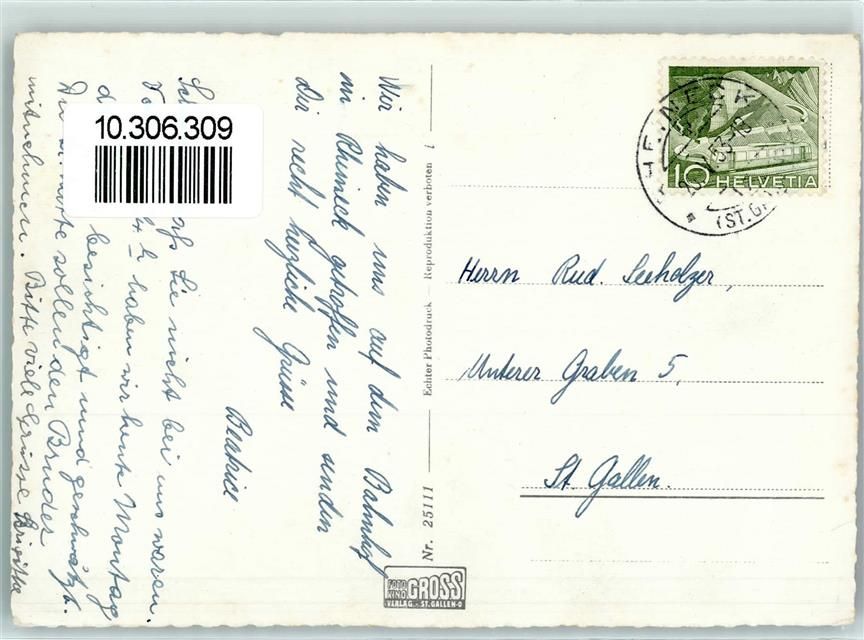 10.306.309
Wir haben uns auf dem Bahnhof
in Rheineck getroffen und senden
Dir recht herzliche Grüsse
Beatrice
Sie nicht bei uns waren.
haben wir heute Montag
besichtigt und geschwätzt.
sollen den Bruder
mitnehmen. Bitte viele Grüsse Brigitte
Nr. 25111 — Echter Photodruck — Reproduktion verboten
FOTO KINO GROSS
VERLAG · ST. GALLEN-O
RHEINECK
(ST. G
10 HELVETIA
Herrn Rud. Seeholzer,
Unterer Graben 5,
St. Gallen.